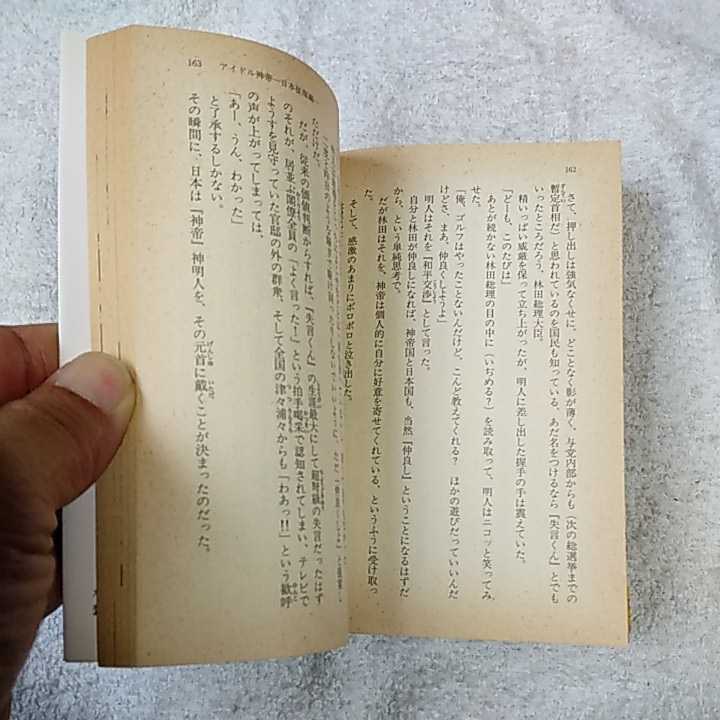 162
さて、押し出しは強気なくせに、どことなく影が薄く、与党内部からも（次の総選挙までの
暫定首相だ）と思われているのを国民も知っている、あだ名をつけるなら『失言くん』とでも
いったところだろう、林田総理大臣。
精いっぱい威厳を保って立ち上がったが、明人に差し出した握手の手は震えていた。
「どーも、このたびは」
あとが続かない林田総理の目の中に（いぢめる？）を読み取って、明人はニコッと笑ってみ
せた。
「俺、ゴルフはやったことないんだけど、こんど教えてくれる？　ほかの遊びだっていいんだ
けどさ、まあ、仲良くしようよ」
明人はそれを『和平交渉』として言った。
自分と林田が仲良しになれば、神帝国と日本国も、当然『仲良し』ということになるはずだ
から、という単純思考で。
だが林田はそれを、神帝は個人的に自分に好意を寄せてくれている、というふうに受け取っ
た。
そして、感激のあまりにボロボロと泣き出した。
163
アイドル神帝―日本征服編―
ただけだ。
だが、従来の価値判断からすれば、『失言くん』の生涯最大にして超弩級の失言だったはず
のそれが、居並ぶ閣僚全員の「よく言った！」という拍手喝采で認知されてしまい、テレビで
ようすを見守っていた官邸の外の群衆、そして全国の津々浦々からも「わあっ!!」という歓呼
の声が上がってしまっては、
「あー、うん、わかった」
と了承するしかない。
その瞬間に、日本は『神帝』神明人を、その元首に戴くことが決まったのだった。